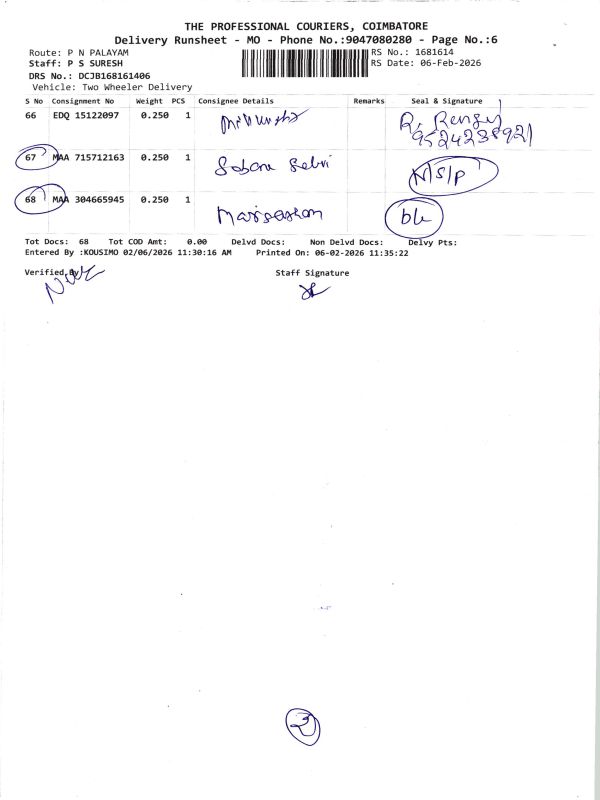 THE PROFESSIONAL COURIERS, COIMBATORE
Delivery Runsheet - MO - Phone No.:9047080280 - Page No.:6
Route: P N PALAYAM RS No.: 1681614
Staff: P S SURESH RS Date: 06-Feb-2026
DRS No.: DCJB168161406
Vehicle: Two Wheeler Delivery
S No Consignment No Weight PCS Consignee Details Remarks Seal & Signature
66 EDQ 15122097 0.250 1 R.
67 MAA 715712163 0.250 1 Sobana Selvi N/S/P
68 MAA 304665945 0.250 1
Tot Docs: 68 Tot COD Amt: 0.00 Delvd Docs: Non Delvd Docs: Delvy Pts:
Entered By :KOUSIMO 02/06/2026 11:30:16 AM Printed On: 06-02-2026 11:35:22
Verified By Staff Signature
2